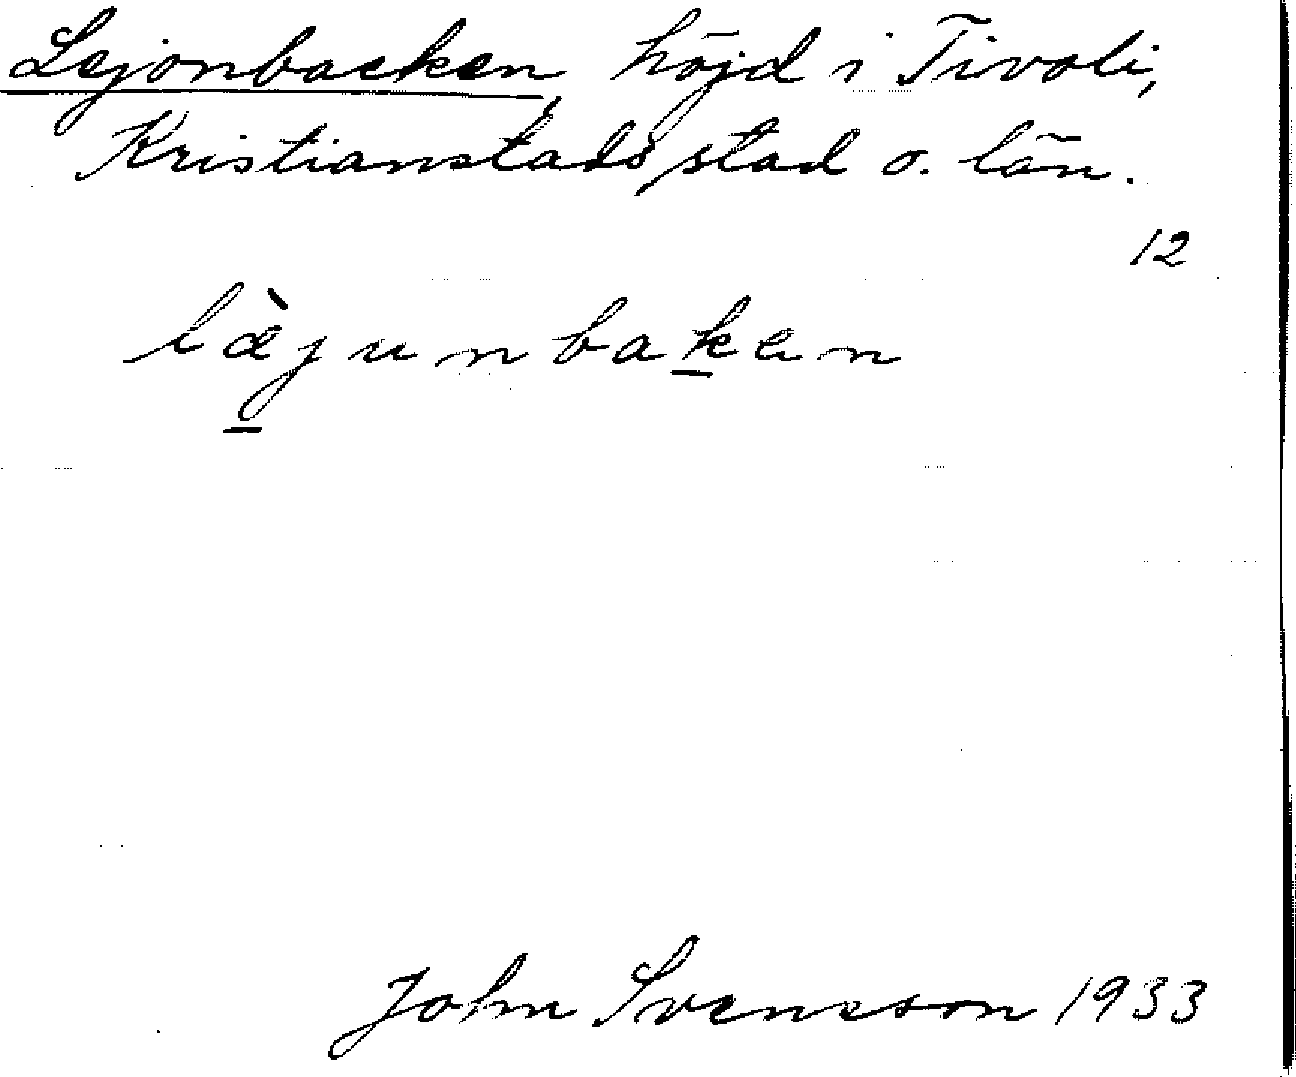 Lejonbacken, höjd i Tivoli,
Kristianstads stad o. län.
12
læ̀junbaken
John Svensson 1933